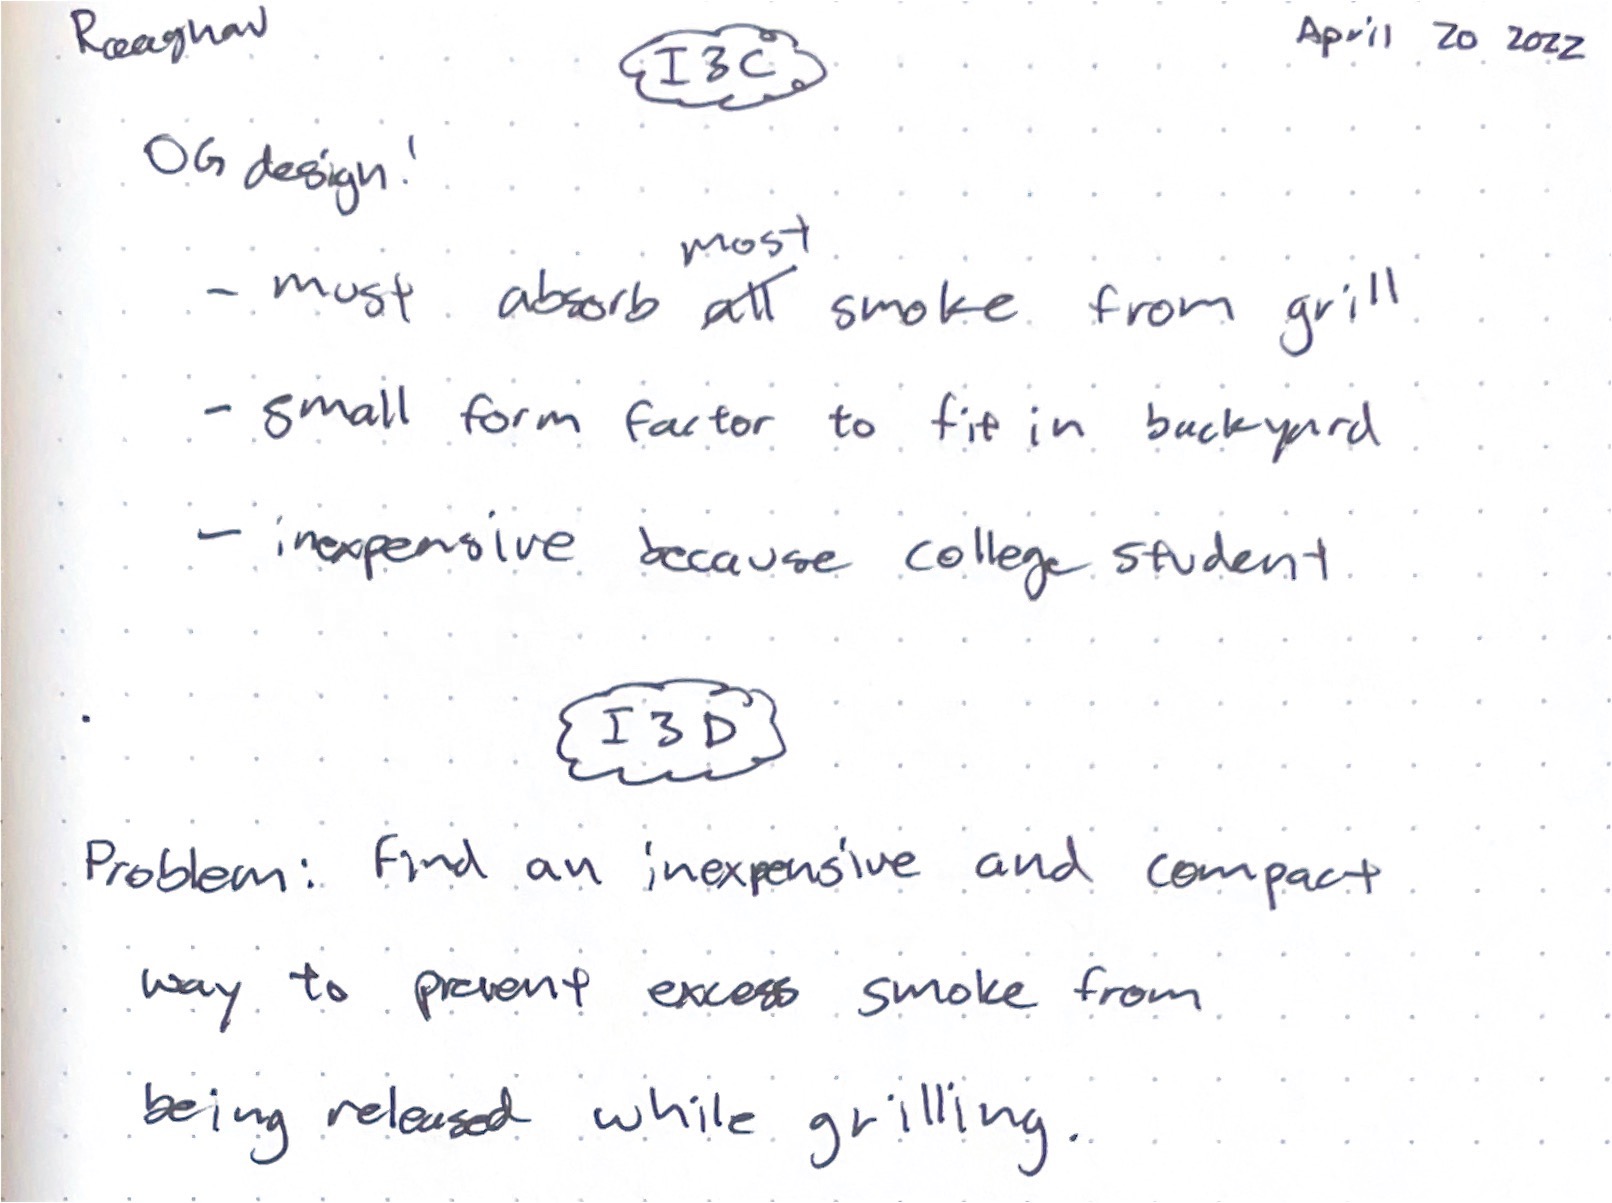 Raaaghav
I3C
April 20 2022
OG design!
most
- must absorb all smoke from grill
- small form factor to fit in backyard
- inexpensive because college student
I3D
Problem: Find an inexpensive and compact
way to prevent excess smoke from
being released while grilling.